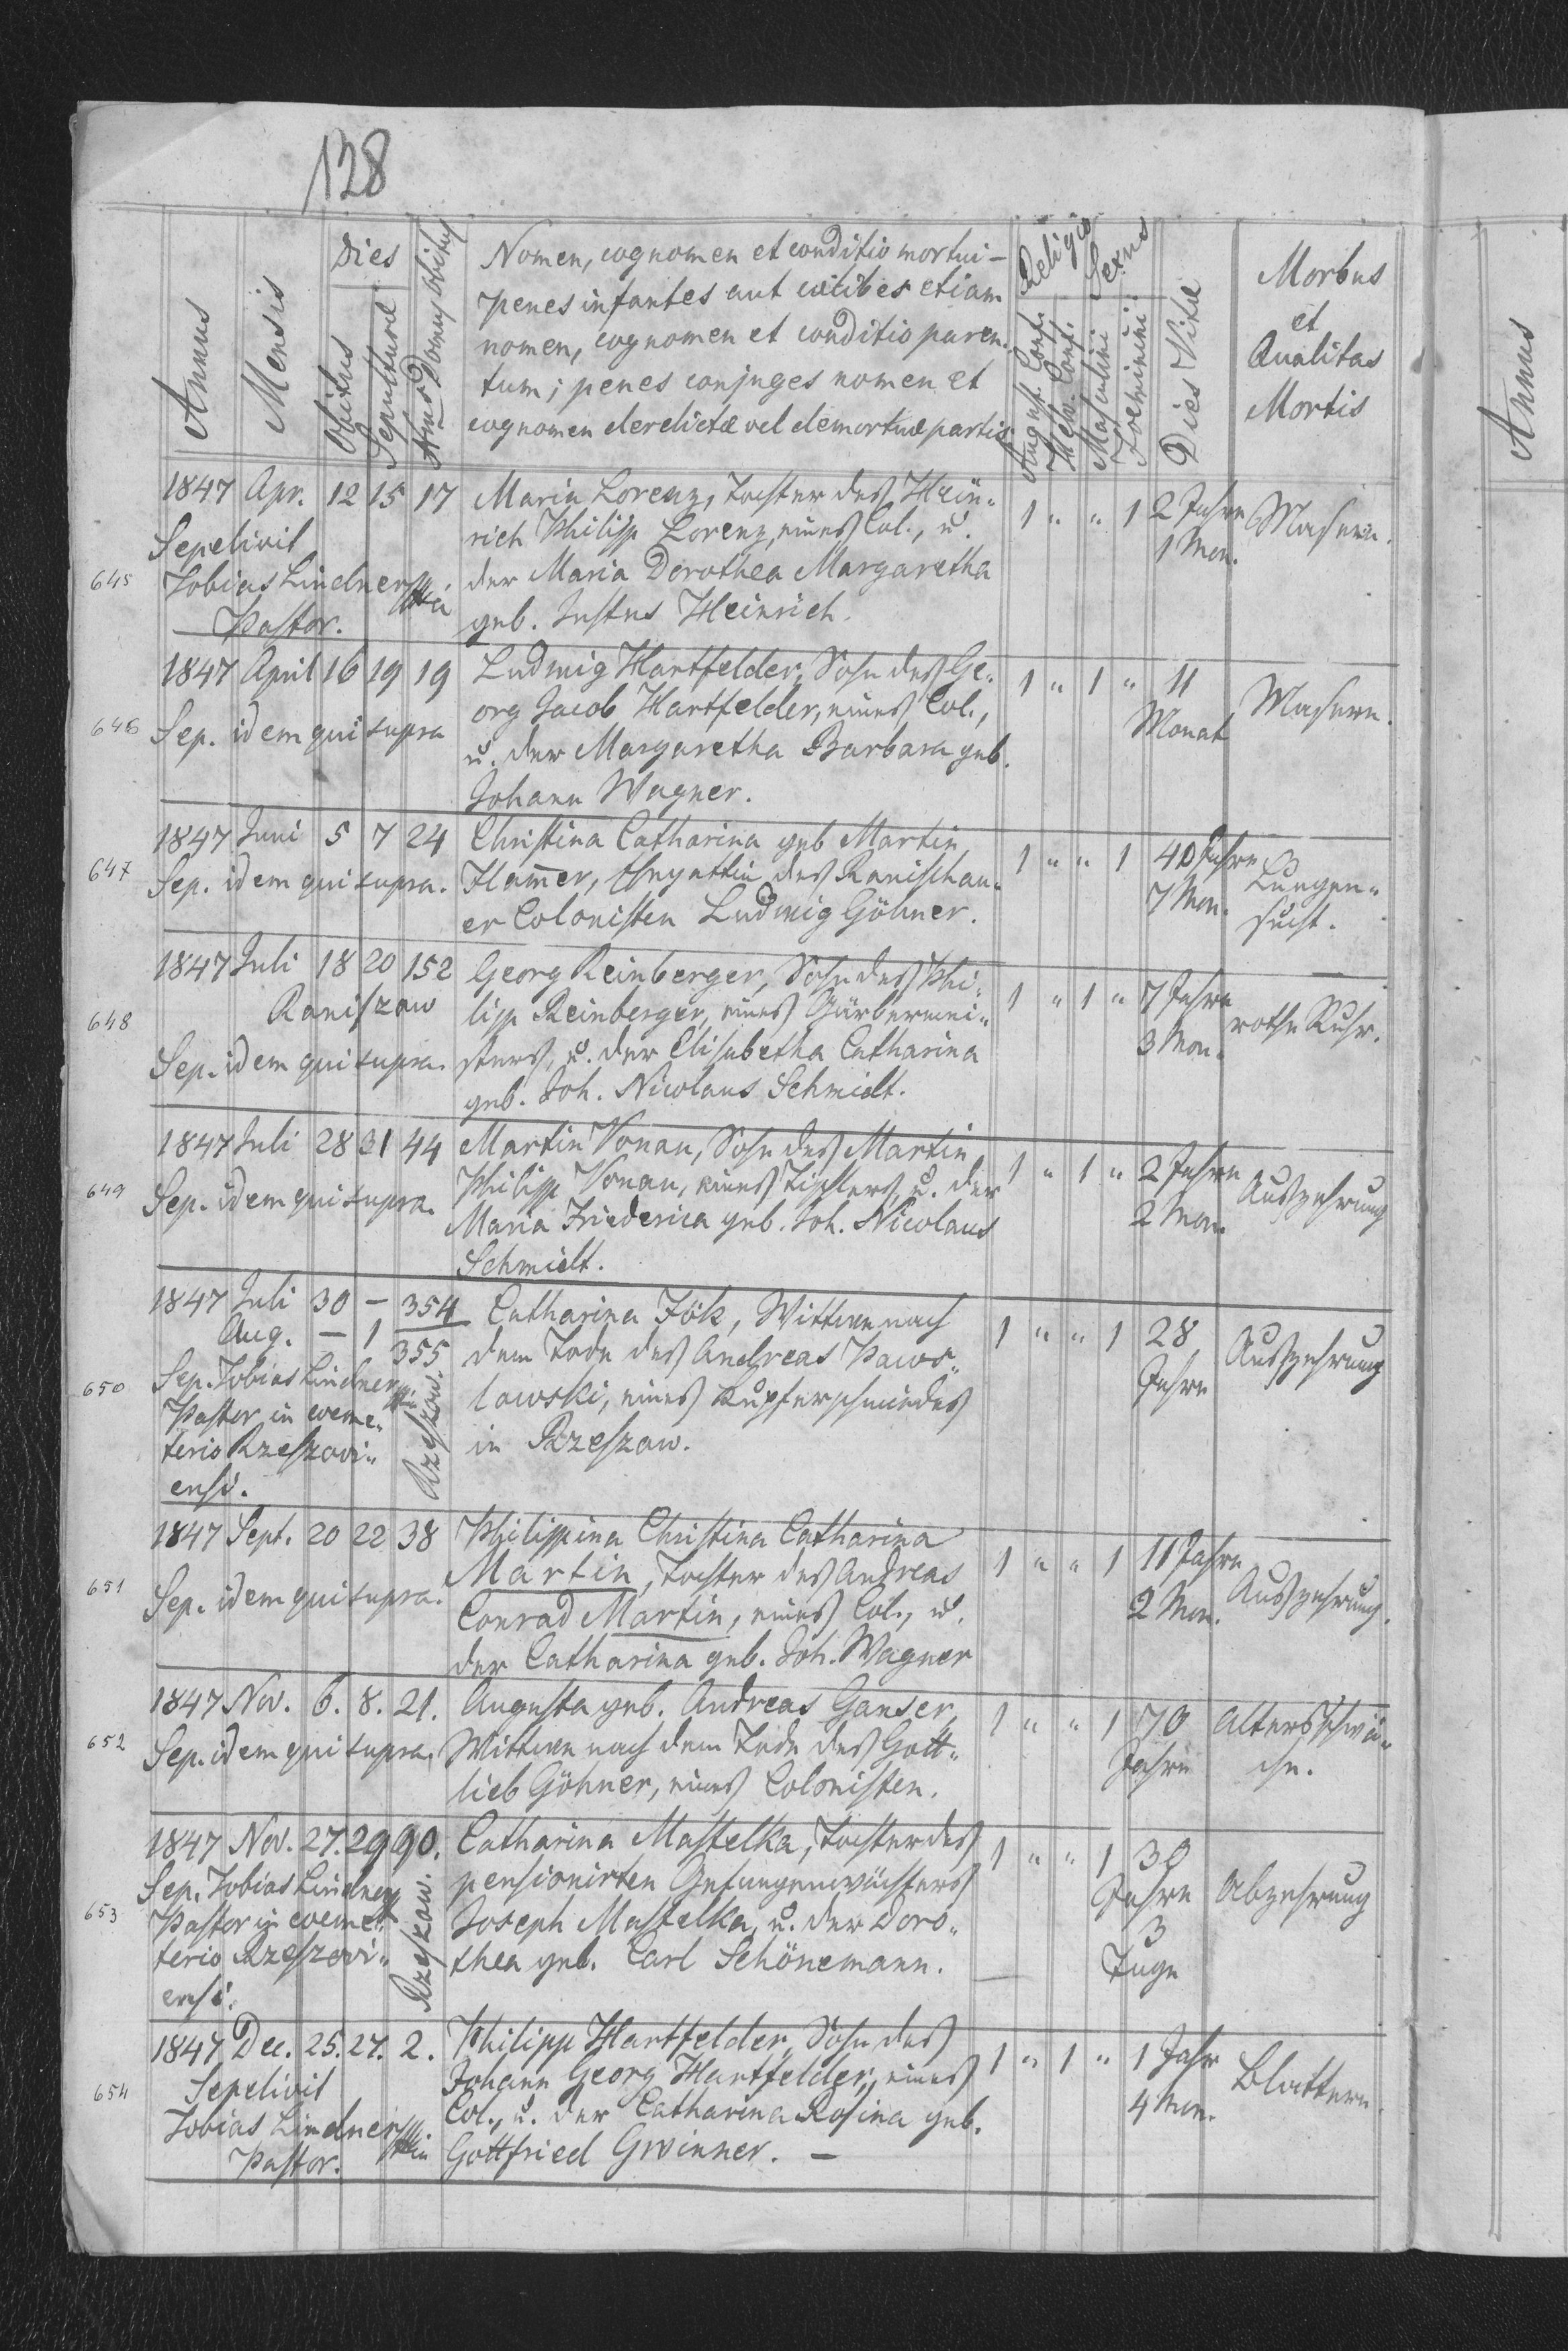 128
Annus
Mensis
Dies
Obitus
Sepulturae
Nrus Domus obitus
Nomen, cognomen et conditio mortui -
penes infantes aut coelibes etiam
nomen, cognomen et conditio paren-
tum; penes conjuges nomen et
cognomen derelictae vel demortuae partis.
Religio
August. Conf.
Helv. Conf.
Sexus
Masculini
Foeminini
Dies Vitae
Morbus
et
Qualitas
Mortis
Annus
645
1847 Apr. 12 15 17
Sepelivit
Tobias Lindner
Pastor.
Maria Lorenz, Tochter des Hein„
rich Philipp Lorenz, eines Col., u.
der Maria Dorothea Margaretha
geb. Justus Heinrich.
1 " " 1
2 Jahre
1 Mon.
Masern.
646
1847 April 16 19 19
Sep. idem qui supra
Ludwig Hartfelder, Sohn des Ge„
org Jacob Hartfelder, eines Col.,
u. der Margaretha Barbara geb.
Johann Wagner.
1 " 1 "
11
Monat
Masern.
647
1847 Juni 5 7 24
Sep. idem qui supra.
Christina Catharina geb Martin
Ham̅er, Ehegattin des Ranischau„
er Colonisten Ludwig Göhner.
1 " " 1
40 Jahre
7 Mon.
Lungen„
sucht.
648
1847 Juli 18 20 152
Raniszow
Sep. idem qui supra.
Georg Reinberger, Sohn des Phi„
lipp Reinberger, eines Gärbermei„
sters, u. der Elisabetha Catharina
geb. Joh. Nicolaus Schmidt.
1 " 1 "
7 Jahre
3 Mon.
rothe Ruhr.
649
1847 Juli 28 31 44
Sep. idem qui supra.
Martin Vonau, Sohn des Martin
Philipp Vonau, eines Tischlers, u. der
Maria Friederica geb. Joh. Nicolaus
Schmidt.
1 " 1 "
2 Jahre
2 Mon.
Auszehrung
650
1847 Juli 30 — 354
Aug. — 1 355
Sep. Tobias Lindner
Pastor in coeme„
terio Rzeszovi„
ensi.
Rzeszow.
Catharina Fök, Wittwe nach
dem Tode des Andreas Paws„
lowski, eines Kupferschmiedes
in Rzeszow.
1 " " 1
28
Jahre
Auszehrung
651
1847 Sept. 20 22 38
Sep. idem qui supra.
Philippina Christina Catharina
Martin, Tochter des Andreas
Conrad Martin, eines Col., u.
der Catharina geb. Joh. Wagner
1 " " 1
11 Jahre
2 Mon.
Auszehrung.
652
1847 Nov. 6. 8. 21.
Sep. idem qui supra.
Augusta geb. Andreas Ganser,
Wittwe nach dem Tode des Gott„
lieb Göhner, eines Colonisten.
1 " " 1
70
Jahre
Altersschwä„
che.
653
1847 Nov. 27. 29 90.
Sep. Tobias Lindner
Pastor in coeme„
terio Rzeszovi„
ensi.
Rzeszow.
Catharina Mastelka, Tochter des
pensionirten Gefangenwächters
Joseph Mastelka, u. der Doro„
thea geb. Carl Schönemann.
1 " " 1
30
Jahre
3
Tage
Abzehrung
654
1847 Dec. 25. 27. 2.
Sepelivit
Tobias Lindner
Pastor.
Philipp Hartfelder, Sohn des
Johann Georg Hartfelder, eines
Col., u. der Catharina Rosina geb.
Gottfried Gwinner. —
1 " 1 "
1 Jahr
4 Mon.
Blattern.